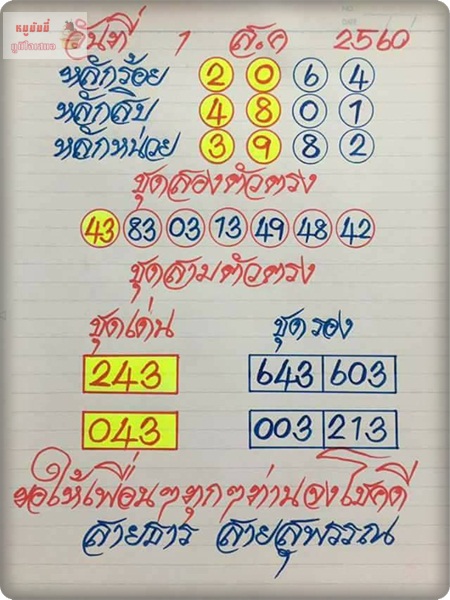 หมูมันนี่
วันที่ 1 ส.ค 2560
หลักร้อย 2 0 6 4
หลักสิบ 4 8 0 1
หลักหน่วย 3 9 8 2
ชุดสองตัวตรง
43 83 03 13 49 48 42
ชุดสามตัวตรง
ชุดเด่น ชุดรอง
243 643 603
043 003 213
ขอให้เพื่อนๆทุกๆท่านจงโชคดี
สายธาร สายสุพรรณ